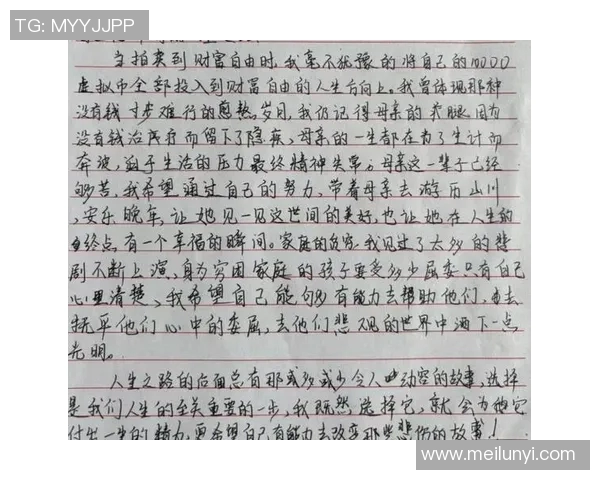 TG: MYYJJPP
当拍卖到财富自由时,我毫不犹豫的将自己的10000
虚拟币全部投入到财富自由的人生方向上。我曾体现那种
没有钱寸步难行的岁月,我仍记得母亲的腿因为
没有钱治疗而留下了隐疾、母亲的一生都在为了生计而
奔波,迫于生活的压力最终精神失常。母亲这一辈子已经
够苦,我希望通过自己的努力,带着母亲去游历山川
,安乐晚年,让她见一见这世间的美好,也让她在人生的
终点有一个幸福的瞬间。家庭的贫穷我见过了太多的悲
剧不断上演,身为穷困家庭的孩子要受多少屈委只有自己
心里清楚、我希望自己能够有能力去帮助他们,去
抚平他们心中的委屈,去他们悲观的世界中洒下一点
光明。
人生之路的后面总有那或多或少令人动容的故事,选择
是我们人生的至关重要的一步,我既然选择它,就会为他
付出一生的精力,更希望自己有能力去改变那些悲伤的故事!
www.meilunyi.com